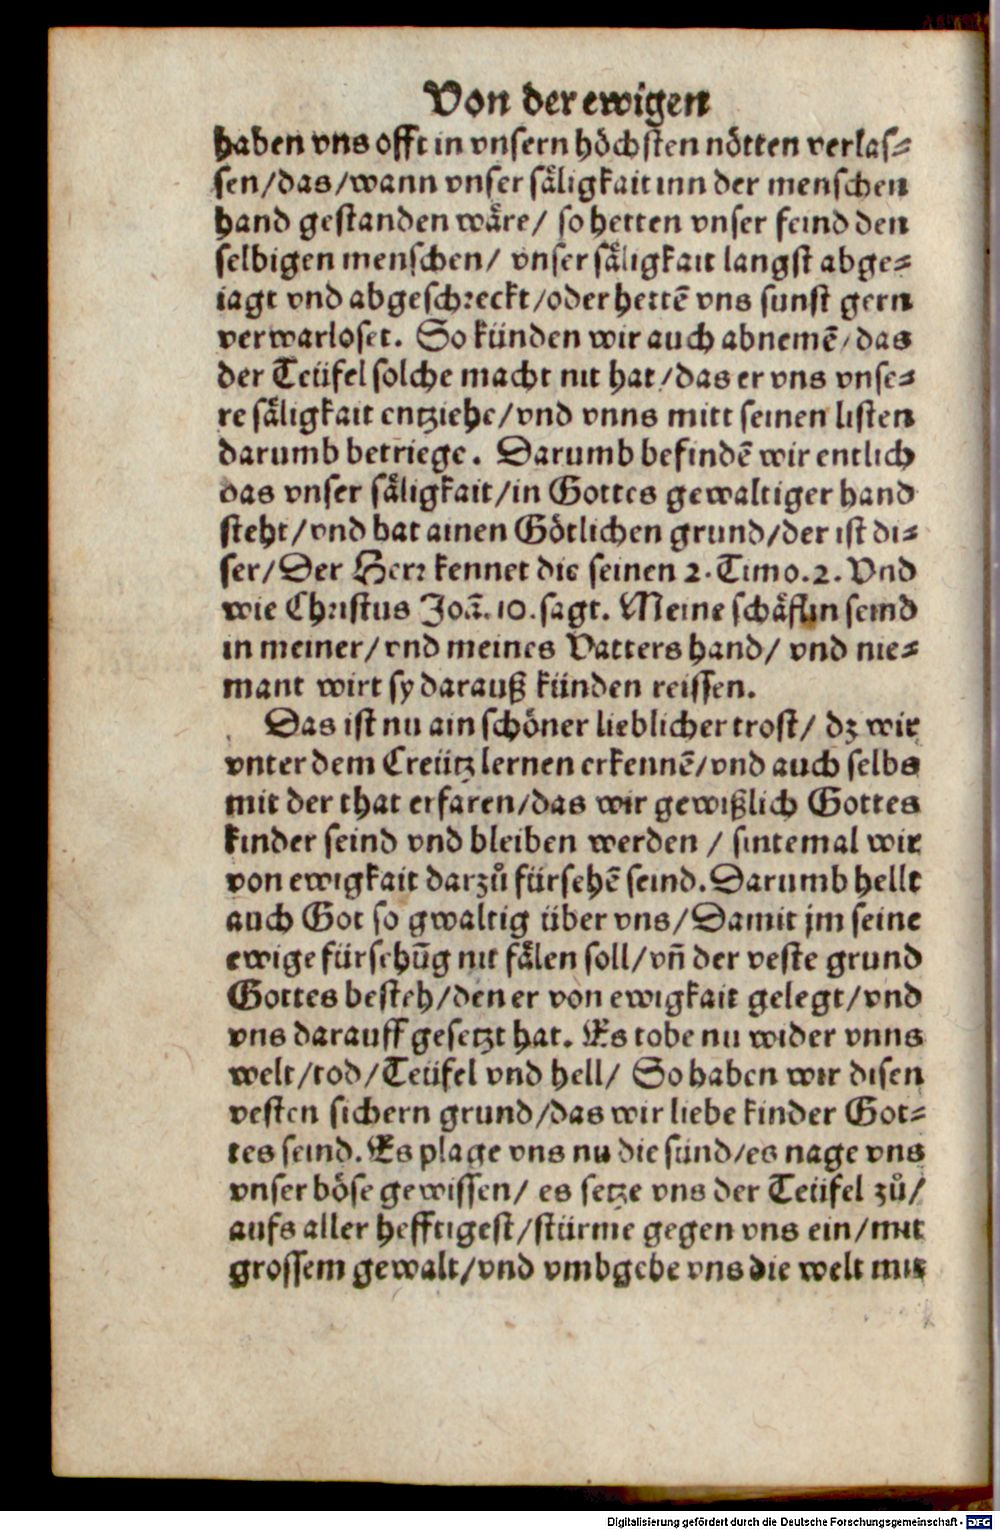 Von der ewigen
haben vns offt in vnsern höchsten nötten verlas⸗
sen/das/wann vnser sàͤligkait inn der menschen
hand gestanden wàͤre/ so hetten vnser feind den
selbigen menschen/ vnser sàͤligkait langst abge⸗
iagt vnd abgeschreckt/oder hettē vns sunst gern
verwarloset. So künden wir auch abnemē/das
der Teüfel solche macht nit hat/das er vns vnse⸗
re sàͤligkait entziehe/vnd vnns mitt seinen listen
darumb betriege. Darumb befindē wir entlich
das vnser sàͤligkait/in Gottes gewaltiger hand
steht/vnd hat ainen Götlichen grund/der ist di⸗
ser/Der Herr kennet die seinen 2. Timo. 2. Vnd
wie Christus Joā. 10. sagt. Meine schàͤflin seind
in meiner/vnd meines Vatters hand/ vnd nie⸗
mant wirt sy darauß künden reissen.
Das ist nu ain schöner lieblicher trost/ dz wir
vnter dem Creütz lernen erkennē/vnd auch selbs
mit der that erfaren/das wir gewißlich Gottes
kinder seind vnd bleiben werden / sintemal wir
von ewigkait darzů fürsehē seind. Darumb hellt
auch Got so gwaltig über vns/Damit jm seine
ewige fürsehūg nit fàͤlen soll/vñ der veste grund
Gottes besteh/den er von ewigkait gelegt/vnd
vns darauff gesetzt hat. Es tobe nu wider vnns
welt/tod/Teüfel vnd hell/ So haben wir disen
vesten sichern grund/das wir liebe kinder Got⸗
tes seind. Es plage vns nu die sünd/es nage vns
vnser böse gewissen/ es setze vns der Teüfel zů/
aufs aller hefftigest/stürme gegen vns ein/mit
grossem gewalt/vnd vmbgebe vns die welt mit
Digitalisierung gefördert durch die Deutsche Forschungsgemeinschaft - DFG